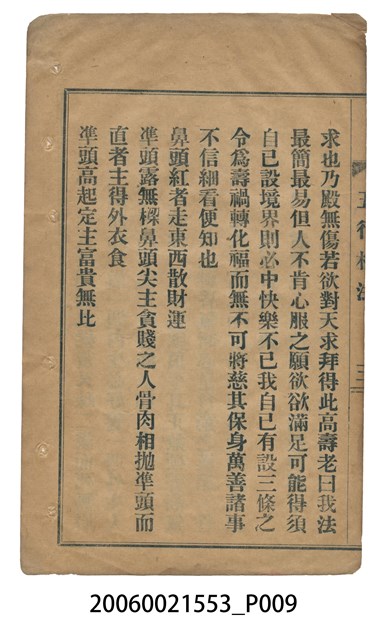 五行相法
三
求也乃殿無傷若欲對天求拜得此高壽老曰我法
最簡最易但人不肯心服之願欲欲滿足可能得須
自己設境界則必中快樂不已我自己有設三條之
令為壽禍轉化福而無不可將慈其保身萬善諸事
不信細看便知也
鼻頭紅者走東西散財運
準頭露無樑鼻頭尖主貪賤之人骨肉相拋準頭而
直者主得外衣食
準頭高起定主富貴無比
20060021553_P009